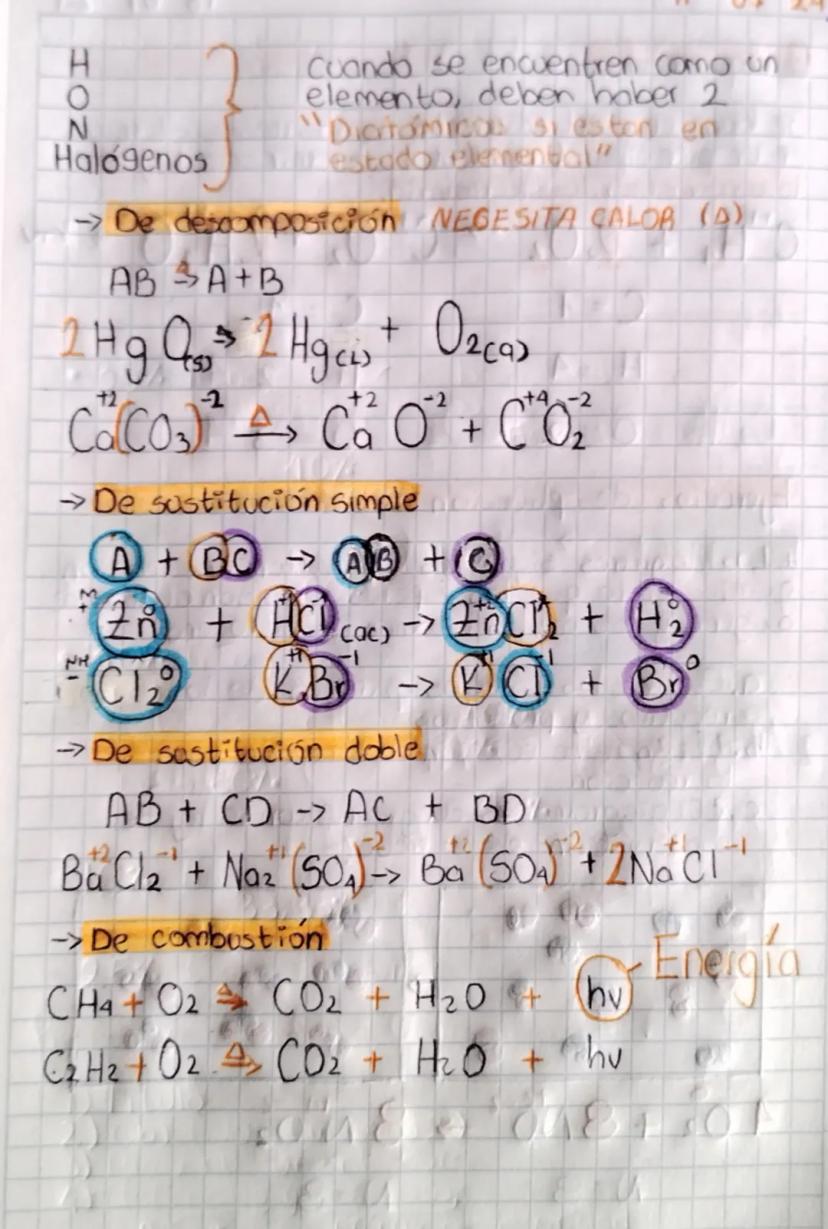 H
O
N
Halógenos
cuando se encuentren como un
elemento, deben haber 2
"Diatómicos si estan en
estado elemental"
→ De descomposición NECESITA CALOR (Δ)
AB Δ→ A + B
2HgO(s) → 2Hg(L) + O2(g)
Ca+2(CO3)-2 Δ→ Ca+2 O-2 + C+4O2-2
→ De sustitución simple
A + BC → AB + C
M+ Zn0 + HCl(ac) → Zn+2Cl2 + H20
NM- Cl20 K+1Br-1 → K+1Cl-1 + Br0
→ De sustitución doble
AB + CD → AC + BD
Ba+2Cl2-1 + Na2+1(SO4)-2 → Ba+2(SO4)-2 + 2Na+1Cl-1
→ De combustión
Energía
CH4 + O2 Δ→ CO2 + H2O + hv
C2H2 + O2 Δ→ CO2 + H2O + hv